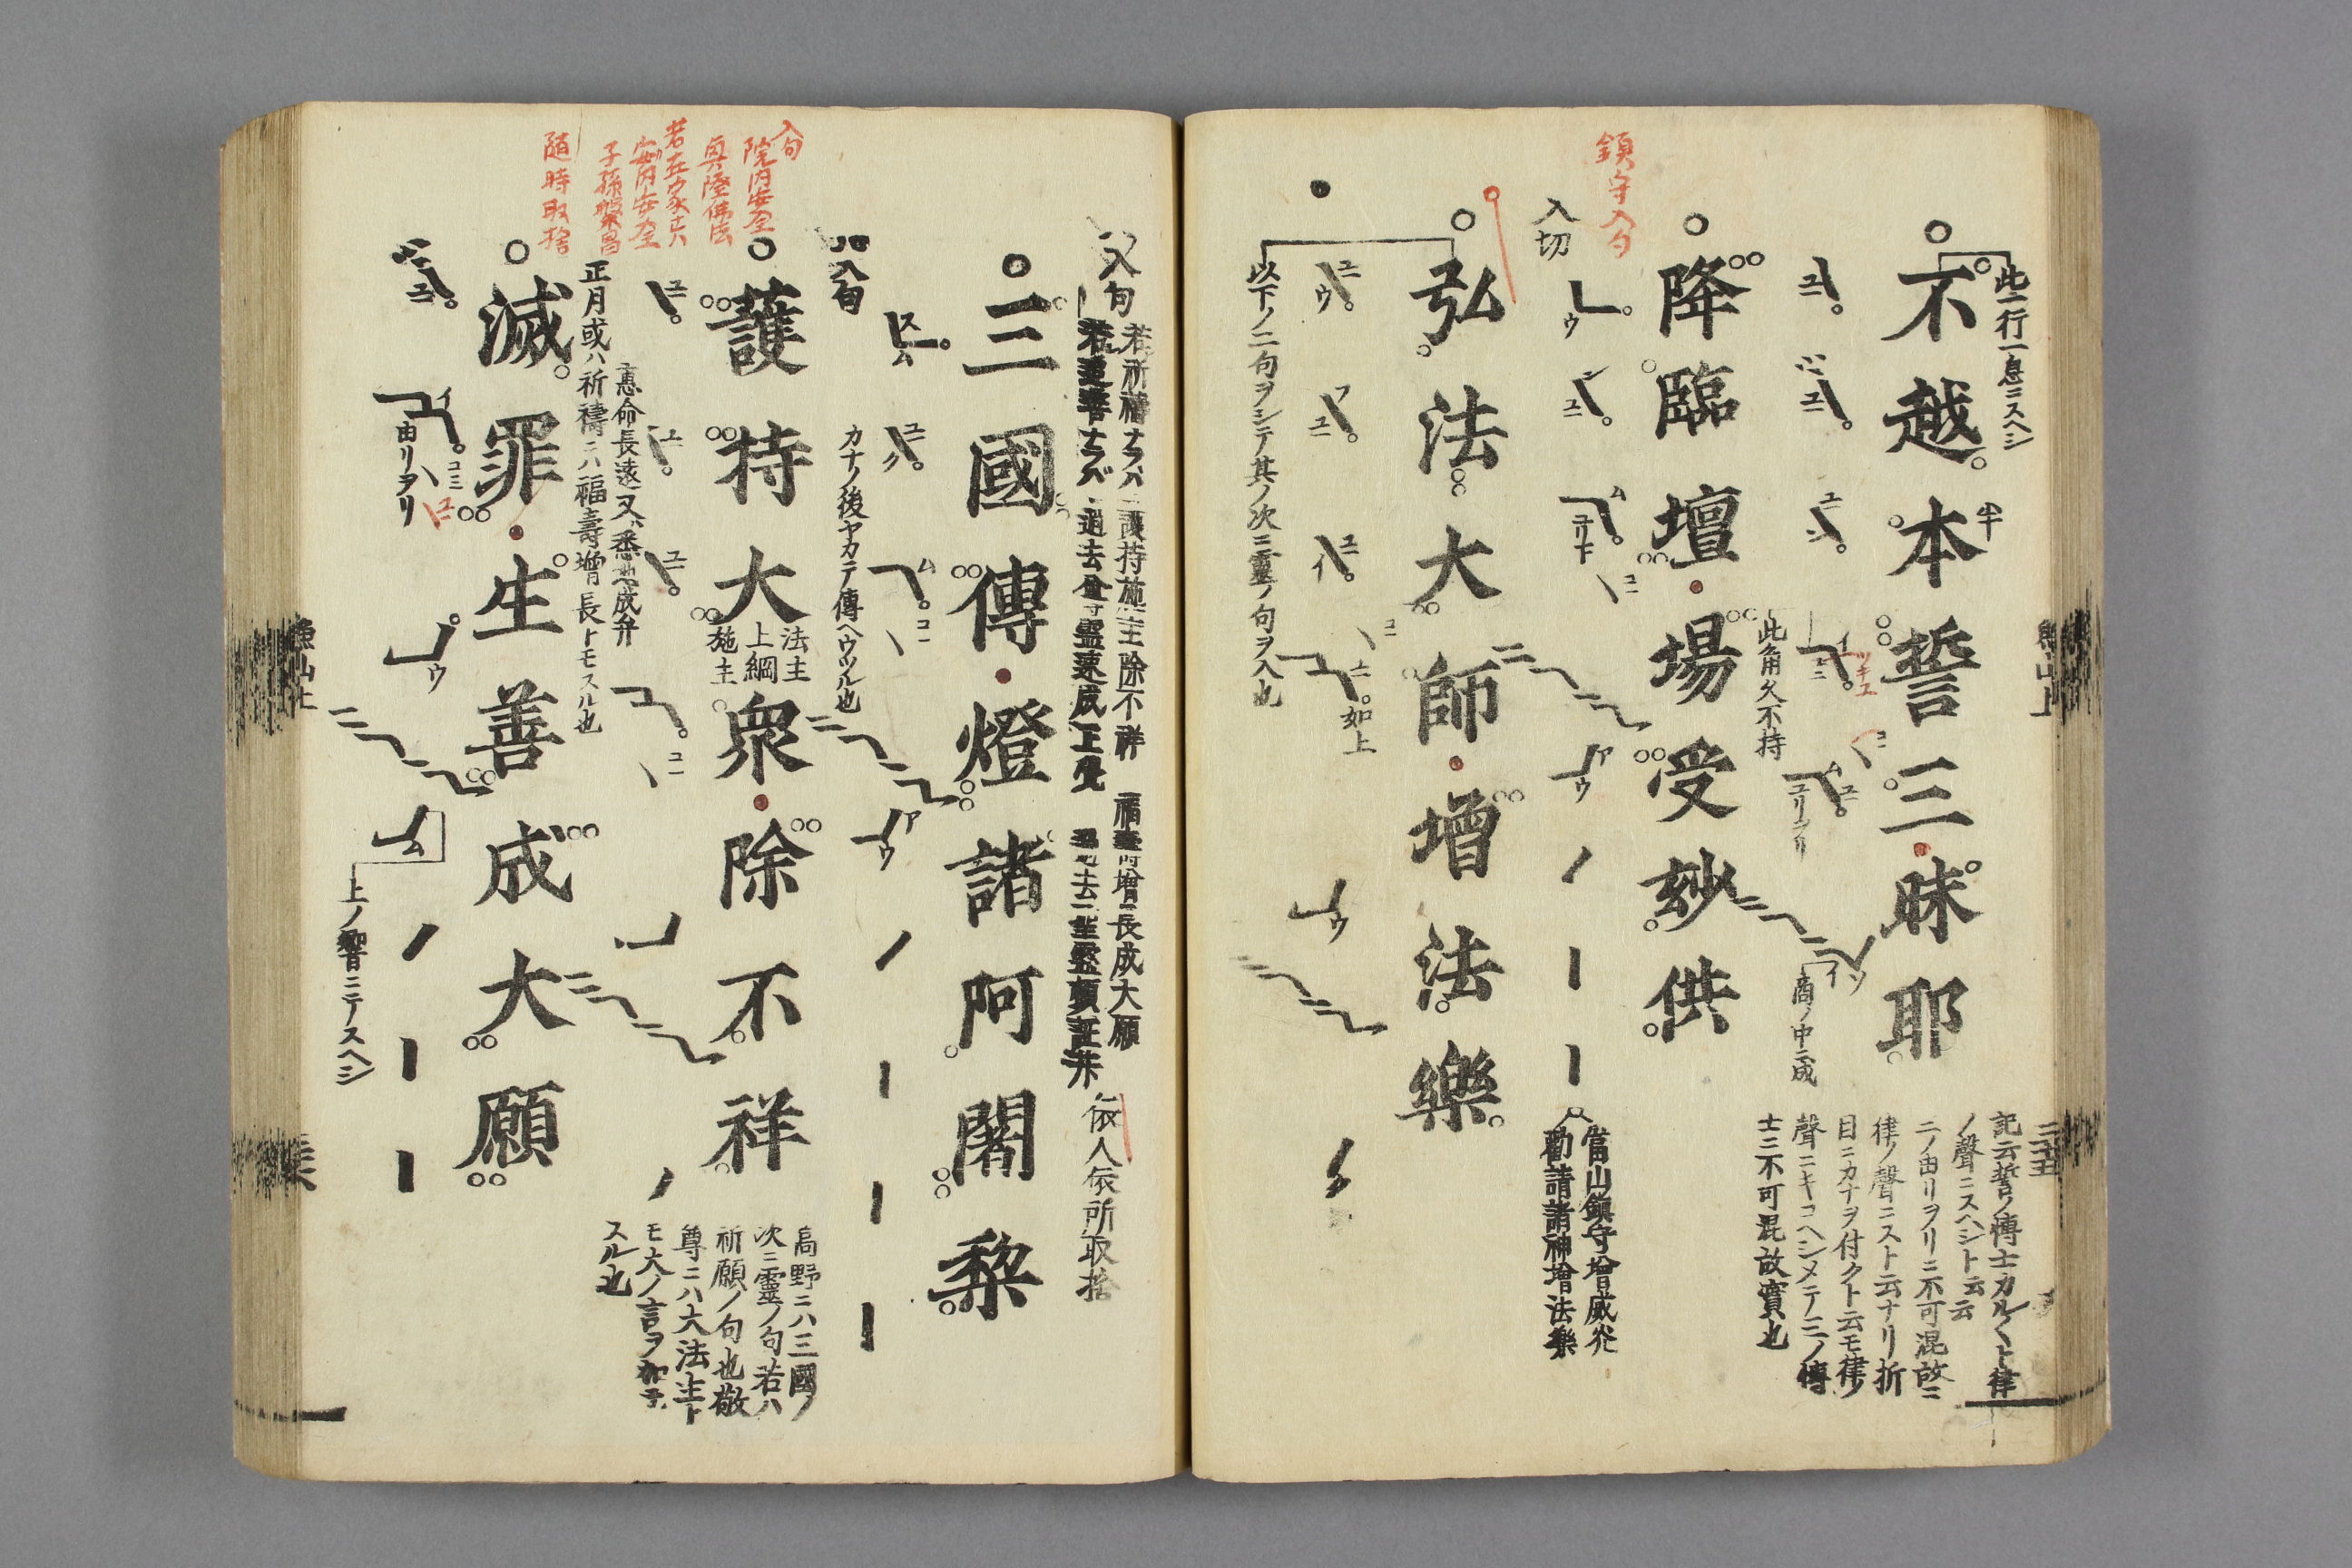 此一行一息ニスヘシ
不越本誓三昧耶
記云誓ノ博士カル〱ト律
ノ聲ニスヘシト云云
ニノ由リヲリニ不可混故ニ
律ノ聲ニスト云ナリ折
目ニカナヲ付クト云モ律ノ
聲ニキコヘシメテ三ノ博
士ニ不可混故實也
商ノ中ニ成
此角久不持
鎮守入句
降臨壇場受妙供
入切
當山鎮守増威光
勸請諸神増法樂
弘法大師増法樂
如上
以下ノ二句ヲシテ其ノ次ニ靈ノ句ヲ入也
又句
若所禱ナラバ 護持施主除不祥 福壽増長成大願
若追善ナラバ
依人依所取捨
三國傳燈諸阿闍梨
カナノ後ヤカテ傳ヘウツル也
入句
入句
院内安全
興隆佛法
護持大
法主
上綱
施主
衆除不祥
高野ニハ三國ノ
次ニ靈ノ句若ハ
祈願ノ句也敬
尊ニハ大法主ト
モ大ノ言ヲ
スル也
子孫繁昌
隨時取捨
惠命長遠又ハ悉地成弁
正月或ハ祈禱ニハ福壽増長トモスル也
滅罪生善成大願
由リヲリ
上ノ響ニテスヘシ
魚山上
二十五
魚山上